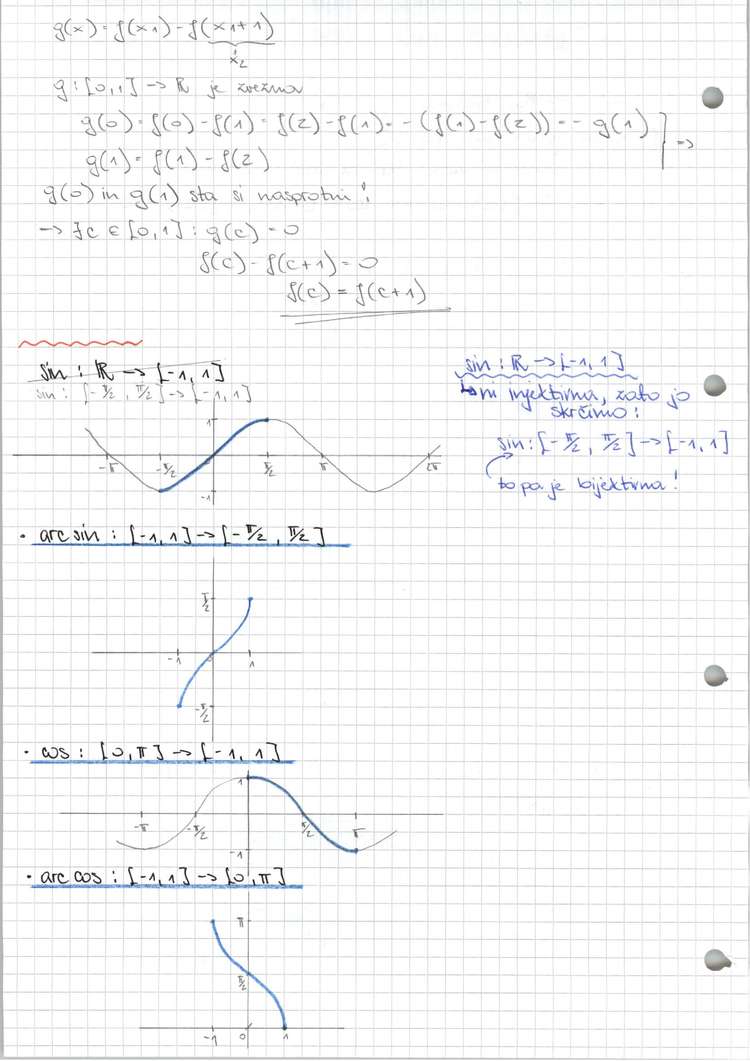 g(x) = f(x1) - f(x1+1)
x2
g : [0,1] -> ℝ je zvezna
g(0) = f(0) - f(1) = f(2) - f(1) = -(f(1) - f(2)) = - g(1)
g(1) = f(1) - f(2)
=>
g(0) in g(1) sta si nasprotni !
-> ∃c ∈ [0,1] : g(c) = 0
f(c) - f(c+1) = 0
f(c) = f(c+1)
sin : ℝ -> [-1, 1]
sin : [-π/2, π/2] -> [-1, 1]
sin : ℝ -> [-1, 1]
ni injektivna, zato jo
skrčimo :
sin : [-π/2, π/2] -> [-1, 1]
to pa je bijektivna !
1
-π -π/2 π/2 π 2π
-1
• arc sin : [-1, 1] -> [-π/2, π/2]
π/2
-1 0 1
-π/2
• cos : [0, π] -> [-1, 1]
1
-π -π/2 π/2 π
-1
• arc cos : [-1, 1] -> [0, π]
π
π/2
-1 0 1